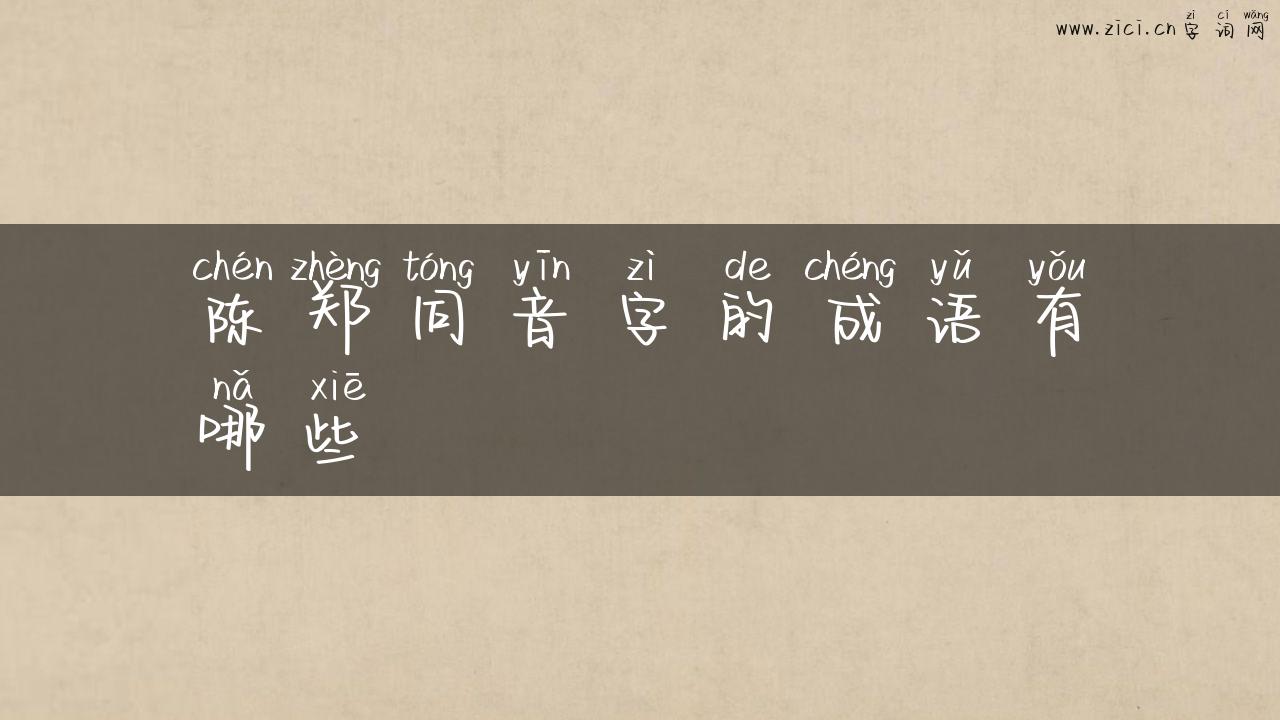 zì cí wǎng
www.zici.cn 字词网
chén zhèng tóng yīn zì de chéng yǔ yǒu
陈郑同音字的成语有
nǎ xiē
哪些